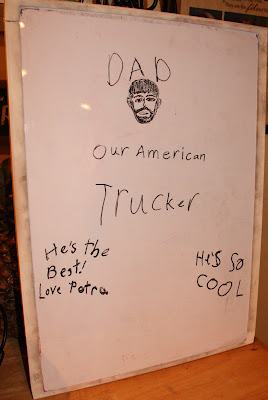 DAD
Our American
Trucker
He's the
Best!
Love Petra
He's so
COOL